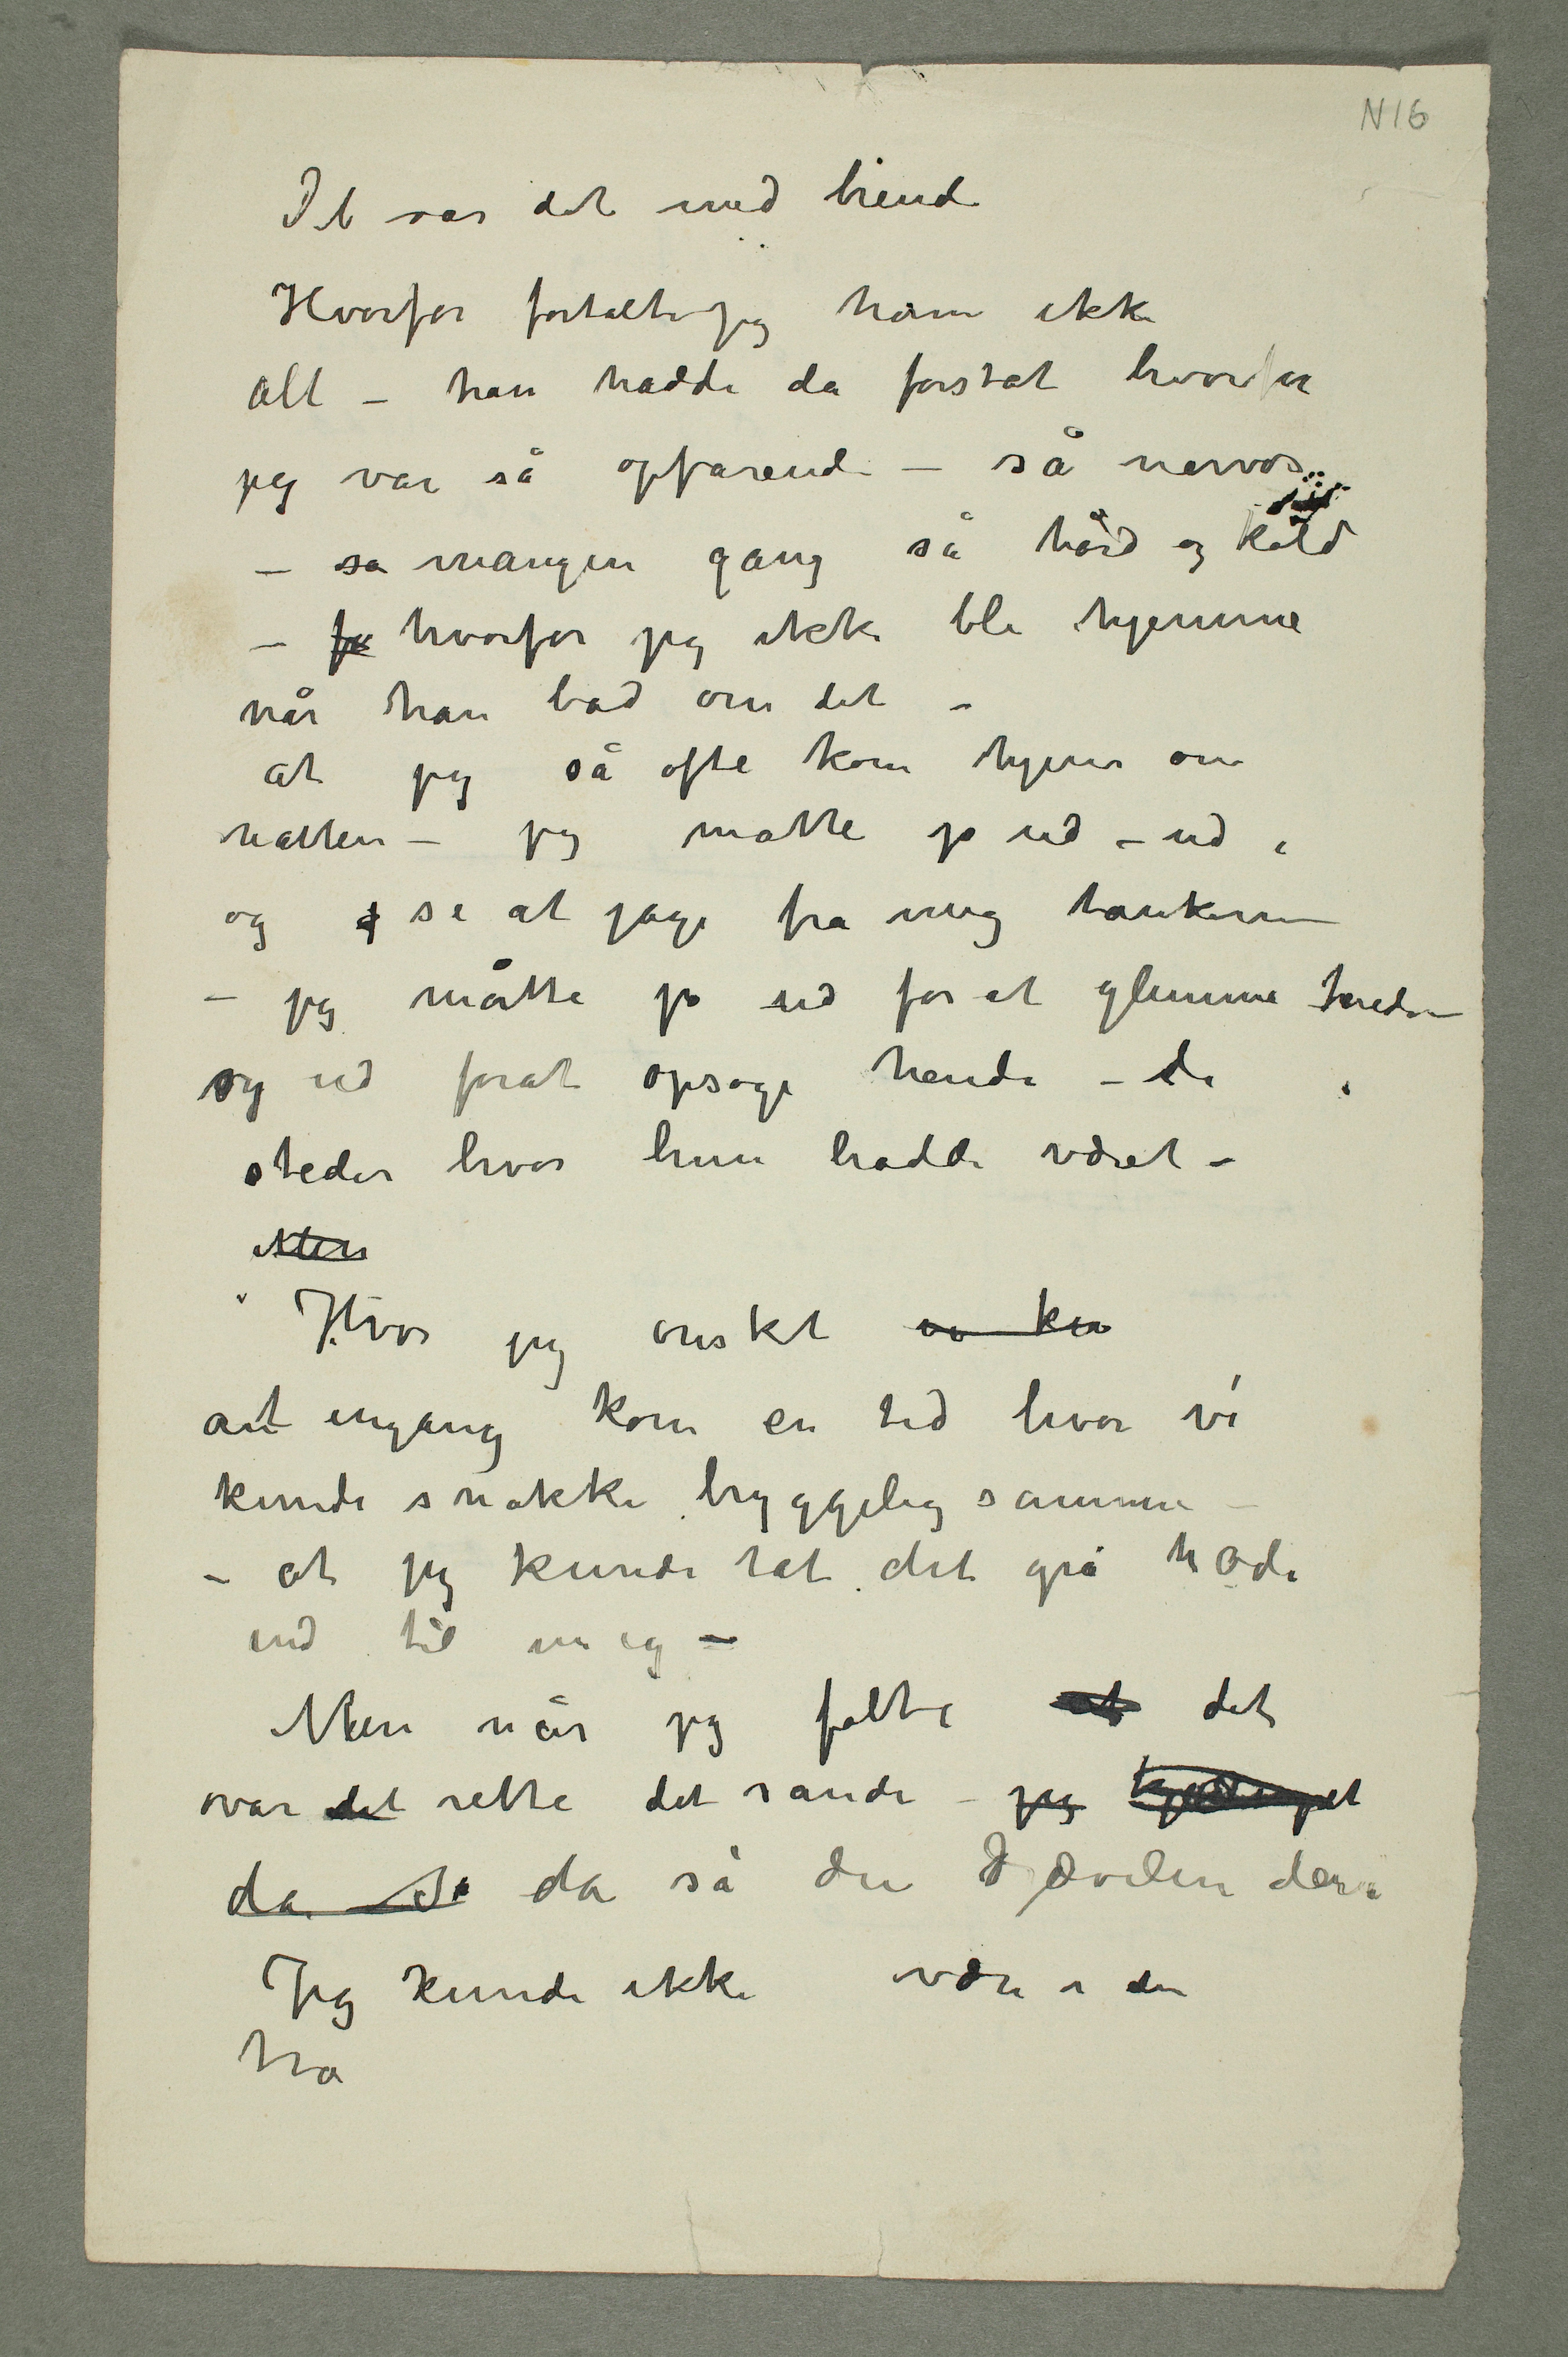 N16
var det med
Hvorfor fortalte jeg ham ikke
alt – han hadde da forståt hvorfor
jeg var så opfarende – så nervøs
– så mangen gang så hård og kold
– hvorfor jeg ikke ble hjemme
når han bad om det –
at jeg så ofte kom hjem om
natten – jeg måtte jo ud – ud
og se at jage fra mig tankerne
– jeg måtte jo ud for at glemme
og ud forat opsøge hende – de
steder hvor hun hadde været –
Men
Hvor jeg ønskt
at engang kom en tid hvor vi
kunde snakke hyggelig sammen –
– at jeg kunde tat det grå hode
ind til mig –
Men når jeg følte at det
var det rette det sande – jeg
da da så den Djævelen der
Jeg kunde ikke være i den
tro